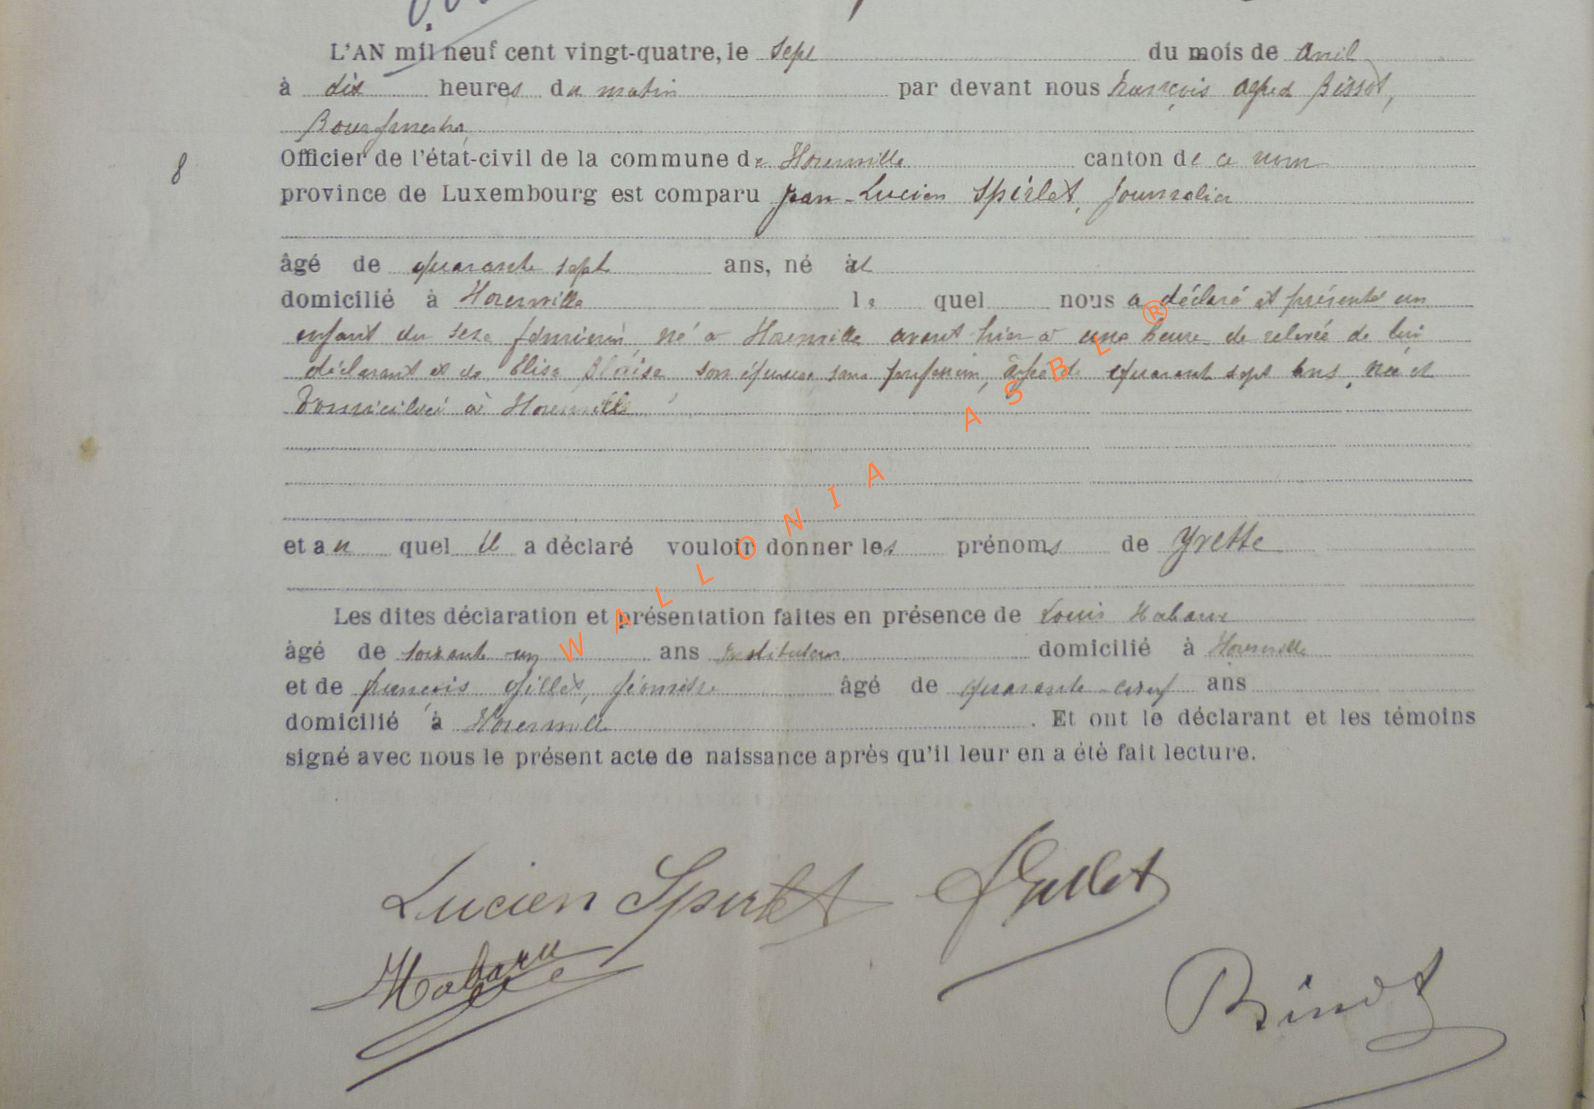 L'AN mil neuf cent vingt-quatre, le sept du mois de avril
à dix heures du matin par devant nous François Alfred
Bourgmestre
Officier de l'état-civil de la commune de Houmville canton de ce nom
province de Luxembourg est comparu Jean-Lucien Spirlet, journalier
âgé de quarante sept ans, né et
domicilié à Houmville lequel nous a déclaré et présenté un
enfant du sexe féminin, né à Houmville avant hier à une heure de relevée de lui
déclarant et de Elise Blaise, son épouse, sans profession, âgée de quarante sept ans, née et
domiciliée à Houmville
et au quel il a déclaré vouloir donner les prénoms de Yvette
Les dites déclaration et présentation faites en présence de Louis Habaru
âgé de soixante-un ans instituteur domicilié à Houmville
et de François Gillet, géomètre âgé de quarante-neuf ans
domicilié à Houmville. Et ont le déclarant et les témoins
signé avec nous le présent acte de naissance après qu'il leur en a été fait lecture.
8
Lucien Spirlet
F Gillet
Habaru
WALLONIA ASBL ®